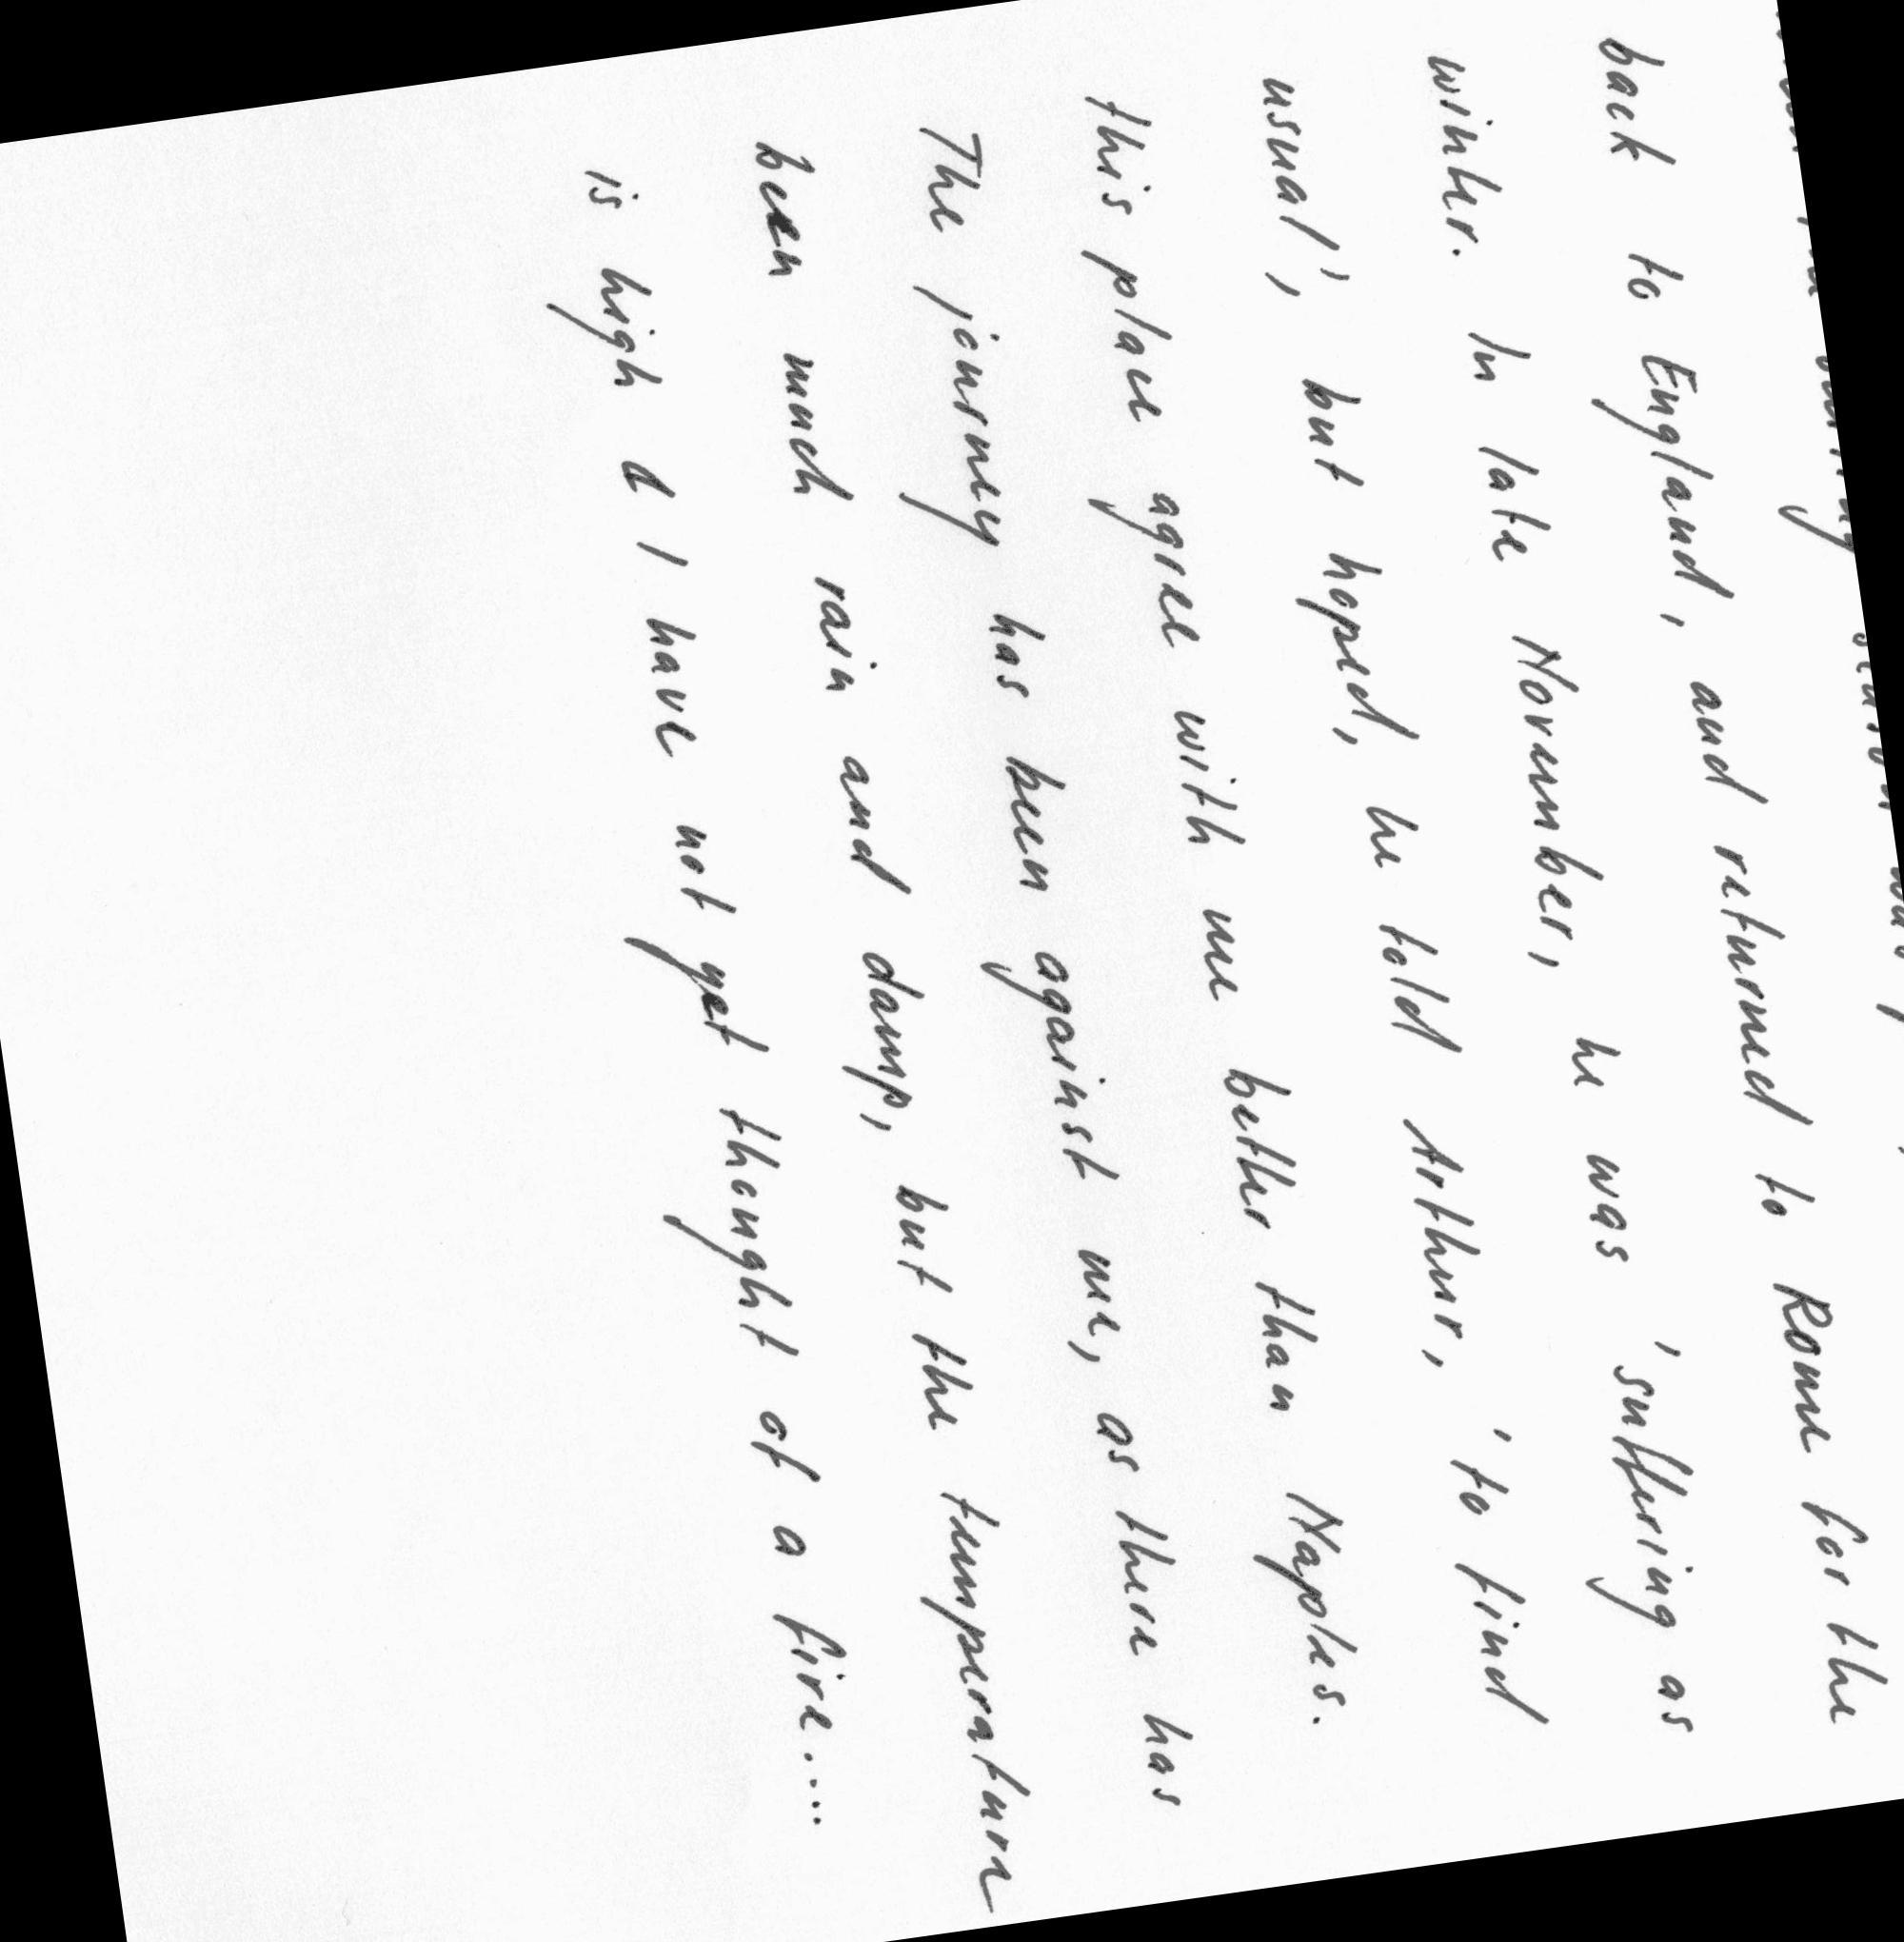 back to England, and returned to Rome for the
winter. In late November, he was 'suffering as
usual', but hoped, he told Arthur, 'to find
this place agree with me better than Naples.
The journey has been against me, as there has
been much rain and damp, but the temperature
is high & I have not yet thought of a fire....